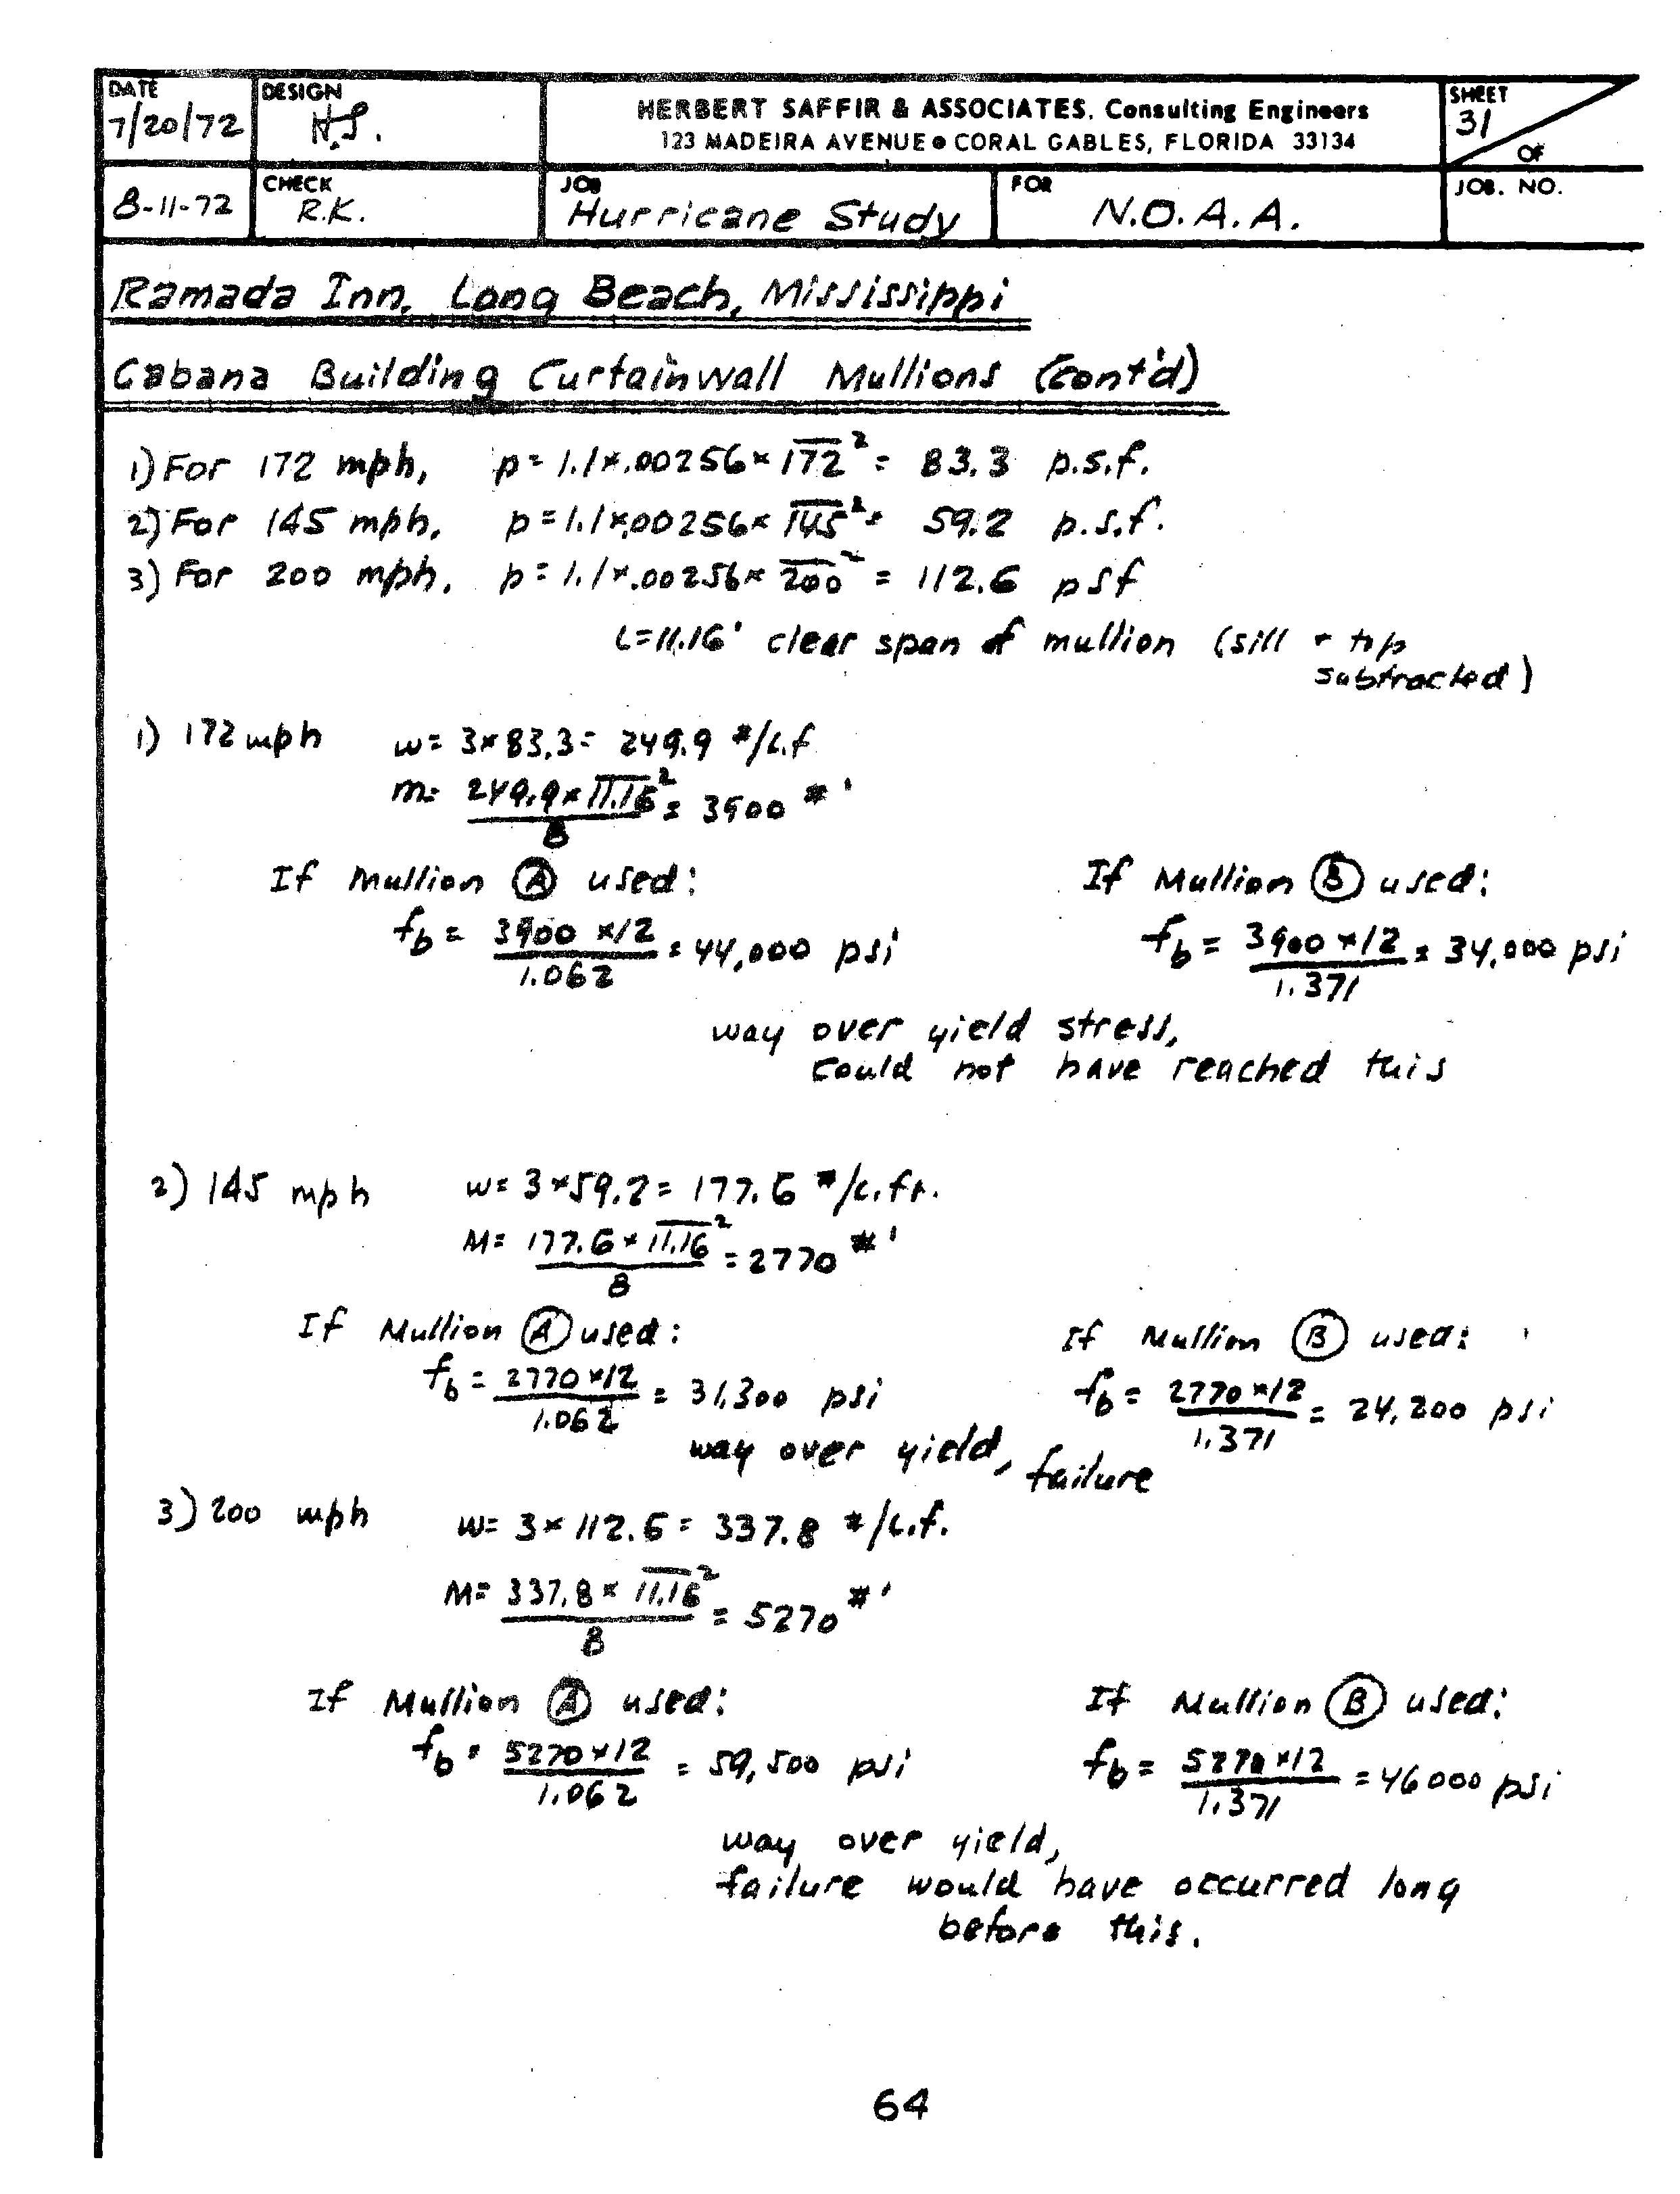 DATE
7/20/72
DESIGN
H.S.
HERBERT SAFFIR & ASSOCIATES, Consulting Engineers
123 MADEIRA AVENUE • CORAL GABLES, FLORIDA 33134
SHEET
31
OF
8-11-72
CHECK
R.K.
JOB
Hurricane Study
FOR
N.O.A.A.
JOB. NO.
Ramada Inn, Long Beach, Mississippi
Cabana Building Curtainwall Mullions (Cont'd)
1) For 172 mph, p = 1.1×.00256×172² = 83.3 p.s.f.
2) For 145 mph, p = 1.1×.00256×145² = 59.2 p.s.f.
3) For 200 mph. p = 1.1×.00256×200² = 112.6 psf
L=11.16' clear span of mullion (sill + top
subtracted)
1) 172 mph w= 3×83.3= 249.9 #/L.f
m= 249.9×11.16²/8 = 3900 #'
If Mullion Ⓐ used: If Mullion Ⓑ used:
fb = 3900 ×12/1.062 = 44,000 psi fb = 3900 ×12/1.371 = 34,000 psi
way over yield stress,
could not have reached this
2) 145 mph w= 3×59.2= 177.6 #/L.ft.
M= 177.6×11.16²/8 = 2770 #'
If Mullion Ⓐ used: If Mullion Ⓑ used:
fb = 2770 ×12/1.062 = 31,300 psi fb = 2770 ×12/1.371 = 24,200 psi
way over yield, failure
3) 200 mph w= 3×112.6= 337.8 #/L.f.
M= 337.8×11.16²/8 = 5270 #'
If Mullion Ⓐ used: If Mullion Ⓑ used:
fb = 5270×12/1.062 = 59,500 psi fb = 5270 ×12/1.371 = 46000 psi
way over yield,
failure would have occurred long
before this.
64